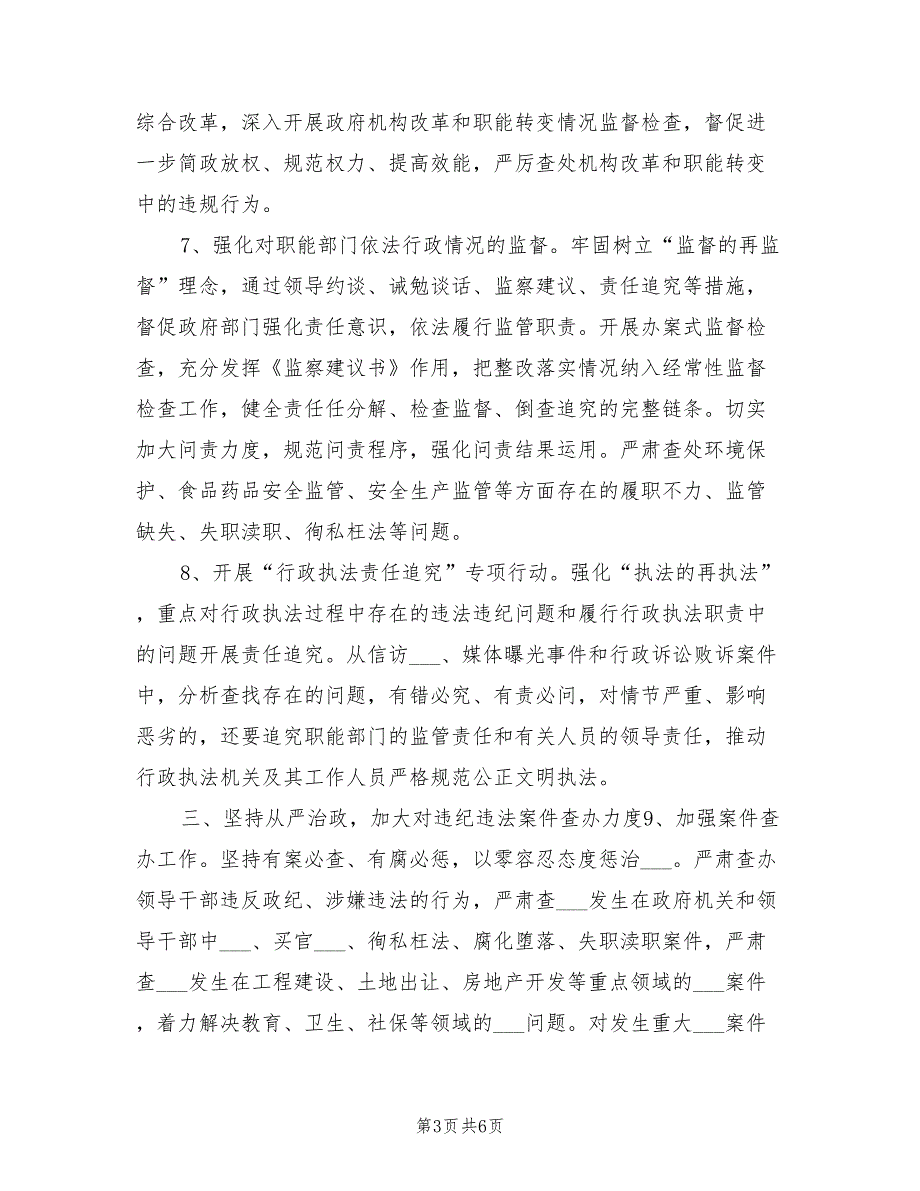 综合改革，深入开展政府机构改革和职能转变情况监督检查，督促进
一步简政放权、规范权力、提高效能，严厉查处机构改革和职能转变
中的违规行为。
7、强化对职能部门依法行政情况的监督。牢固树立“监督的再监
督”理念，通过领导约谈、诫勉谈话、监察建议、责任追究等措施，
督促政府部门强化责任意识，依法履行监管职责。开展办案式监督检
查，充分发挥《监察建议书》作用，把整改落实情况纳入经常性监督
检查工作，健全责任任分解、检查监督、倒查追究的完整链条。切实
加大问责力度，规范问责程序，强化问责结果运用。严肃查处环境保
护、食品药品安全监管、安全生产监管等方面存在的履职不力、监管
缺失、失职渎职、徇私枉法等问题。
8、开展“行政执法责任追究”专项行动。强化“执法的再执法”
，重点对行政执法过程中存在的违法违纪问题和履行行政执法职责中
的问题开展责任追究。从信访___、媒体曝光事件和行政诉讼败诉案件
中，分析查找存在的问题，有错必究、有责必问，对情节严重、影响
恶劣的，还要追究职能部门的监管责任和有关人员的领导责任，推动
行政执法机关及其工作人员严格规范公正文明执法。
三、坚持从严治政，加大对违纪违法案件查办力度9、加强案件查
办工作。坚持有案必查、有腐必惩，以零容忍态度惩治___。严肃查办
领导干部违反政纪、涉嫌违法的行为，严肃查___发生在政府机关和领
导干部中___、买官___、徇私枉法、腐化堕落、失职渎职案件，严肃
查___发生在工程建设、土地出让、房地产开发等重点领域的___案件
，着力解决教育、卫生、社保等领域的___问题。对发生重大___案件
第3页 共6页